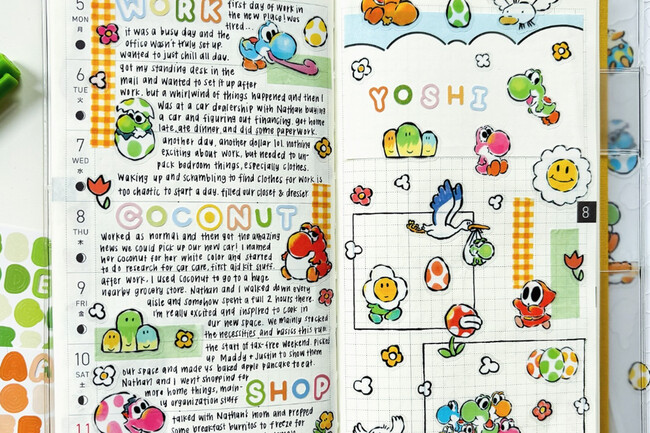 5
MON
月
WORK
first day of work in
the new place! was
tired...
it was a busy day and the
office wasn't truly set up.
wanted to just chill all day.
6
TUE
火
got my standing desk in the
mail and wanted to set it up after
work, but a whirlwind of things happened and then I
was at a car dealership with Nathan buying
a car and figuring out financing. got home
late, ate dinner, and did some paperwork.
7
WED
水
another day, another dollar lol. nothing
exciting about work, but needed to un-
pack bedroom things, especially clothes.
waking up and scrambling to find clothes for work is
too chaotic to start a day. filled our closet & dresser
8
THU
木
COCONUT
worked as normal and then got the amazing
news we could pick up our new car! I named
her Coconut for her white color and started
to do research for car care, first aid kit stuff.
9
FRI
金
after work, I used Coconut to go to a huge
nearby grocery store. Nathan and I walked down every
aisle and somehow spent a full 2 hours there.
I'm really excited and inspired to cook in
our new space. we mainly stocked
the necessities and
10
SAT
土
the start of tax-free weekend. picked
up Maddy + Justin to show them
our space and made us baked apple pancake to eat.
Nathan and I went shopping for
more home things, main-
ly organization stuff
SHOP
11
talked with Nathan's mom and prepped
some breakfast burritos to freeze for
YOSHI
8